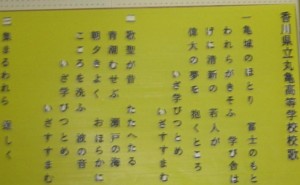 香川県立丸亀高等学校校歌
一 亀城のほとり 富士のもと
われらがきそふ 学び舎は
げに清新の 若人が
偉大の夢を 抱くところ
いざ学びつとめ
いざすすまむ
二 歌聖が音 たたへたる
青潮むせぶ 瀬戸の海
朝夕きよく おほらかに
こころを洗ふ 波の音
いざ学びつとめ
いざすすまむ
三 集まるわれら 逞しく